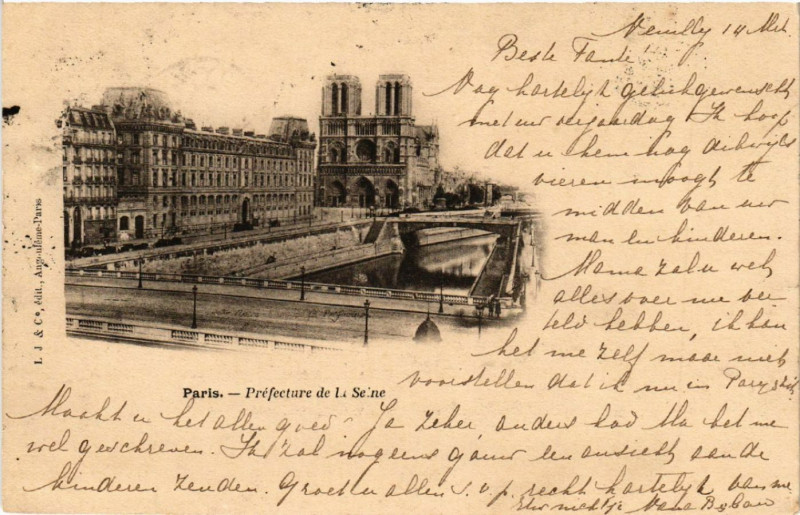 Neuilly 14 Mrt.
Beste Tante!
Nog hartelijk gelukgewenscht
met uw verjaardag! Ik hoop
dat u hem nog dikwijls
vieren moogt te
midden van uw
man en kinderen.
Mama zal u wel
alles over me ver
teld hebben, ik kan
het me zelf maar niet
voorstellen dat ik nu in Parijs zit
L. J & Cº, édit., Angoulême-Paris
Paris. — Préfecture de La Seine
Maakt u het allen goed? Ja zeker, anders had Ma het me
wel geschreven. Ik zal nog eens gauw een ansicht aan de
kinderen zenden. Groet u allen s.v.p. recht hartelijk van me
Uw nichtje Nana